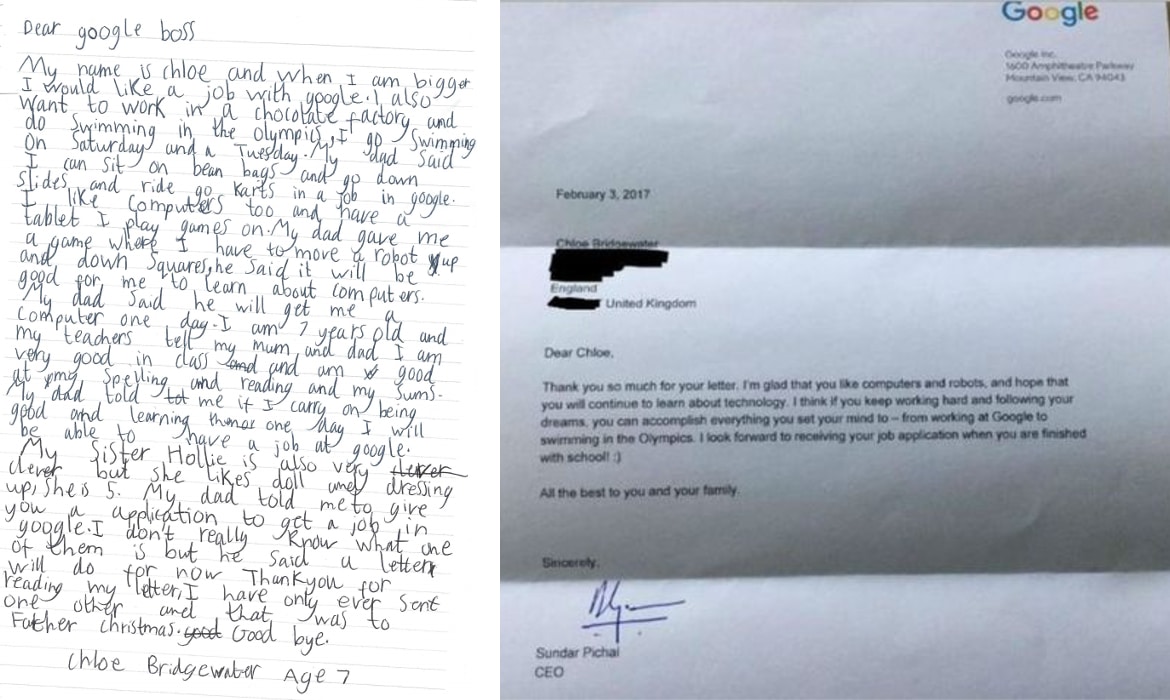 Dear google boss
My name is chloe and when I am bigger
I would like a job with google. I also
want to work in a chocolate factory and
do swimming in the olympics, I go swimming
on Saturday and a Tuesday. My dad said
I can sit on bean bags and go down
slides and ride go karts in a job in google.
I like computers too and have a
tablet I play games on. My dad gave me
a game where I have to move a robot up
and down squares, he said it will be
good for me to learn about computers.
My dad said he will get me a
computer one day. I am 7 years old and
my teachers tell my mum and dad I am
very good in class and and am good
at my spelling and reading and my sums.
My dad told tot me if I carry on being
good and learning one day I will
be able to have a job at google.
My sister Hollie is also very clever
clever but she likes doll and dressing
up, she is 5. My dad told me to give
you a application to get a job in
google. I don't really know what one
of them is but he said a letter
will do for now Thankyou for
reading my letter, I have only ever sent
one other and that was to
Father christmas. good Good bye.
Chloe Bridgewater Age 7
Google
Google Inc.
1600 Amphitheatre Parkway
Mountain View, CA 94043
google.com
February 3, 2017
Chloe Bridgewater
England
United Kingdom
Dear Chloe,
Thank you so much for your letter. I'm glad that you like computers and robots, and hope that
you will continue to learn about technology. I think if you keep working hard and following your
dreams, you can accomplish everything you set your mind to – from working at Google to
swimming in the Olympics. I look forward to receiving your job application when you are finished
with school! :)
All the best to you and your family.
Sincerely,
Sundar Pichai
CEO